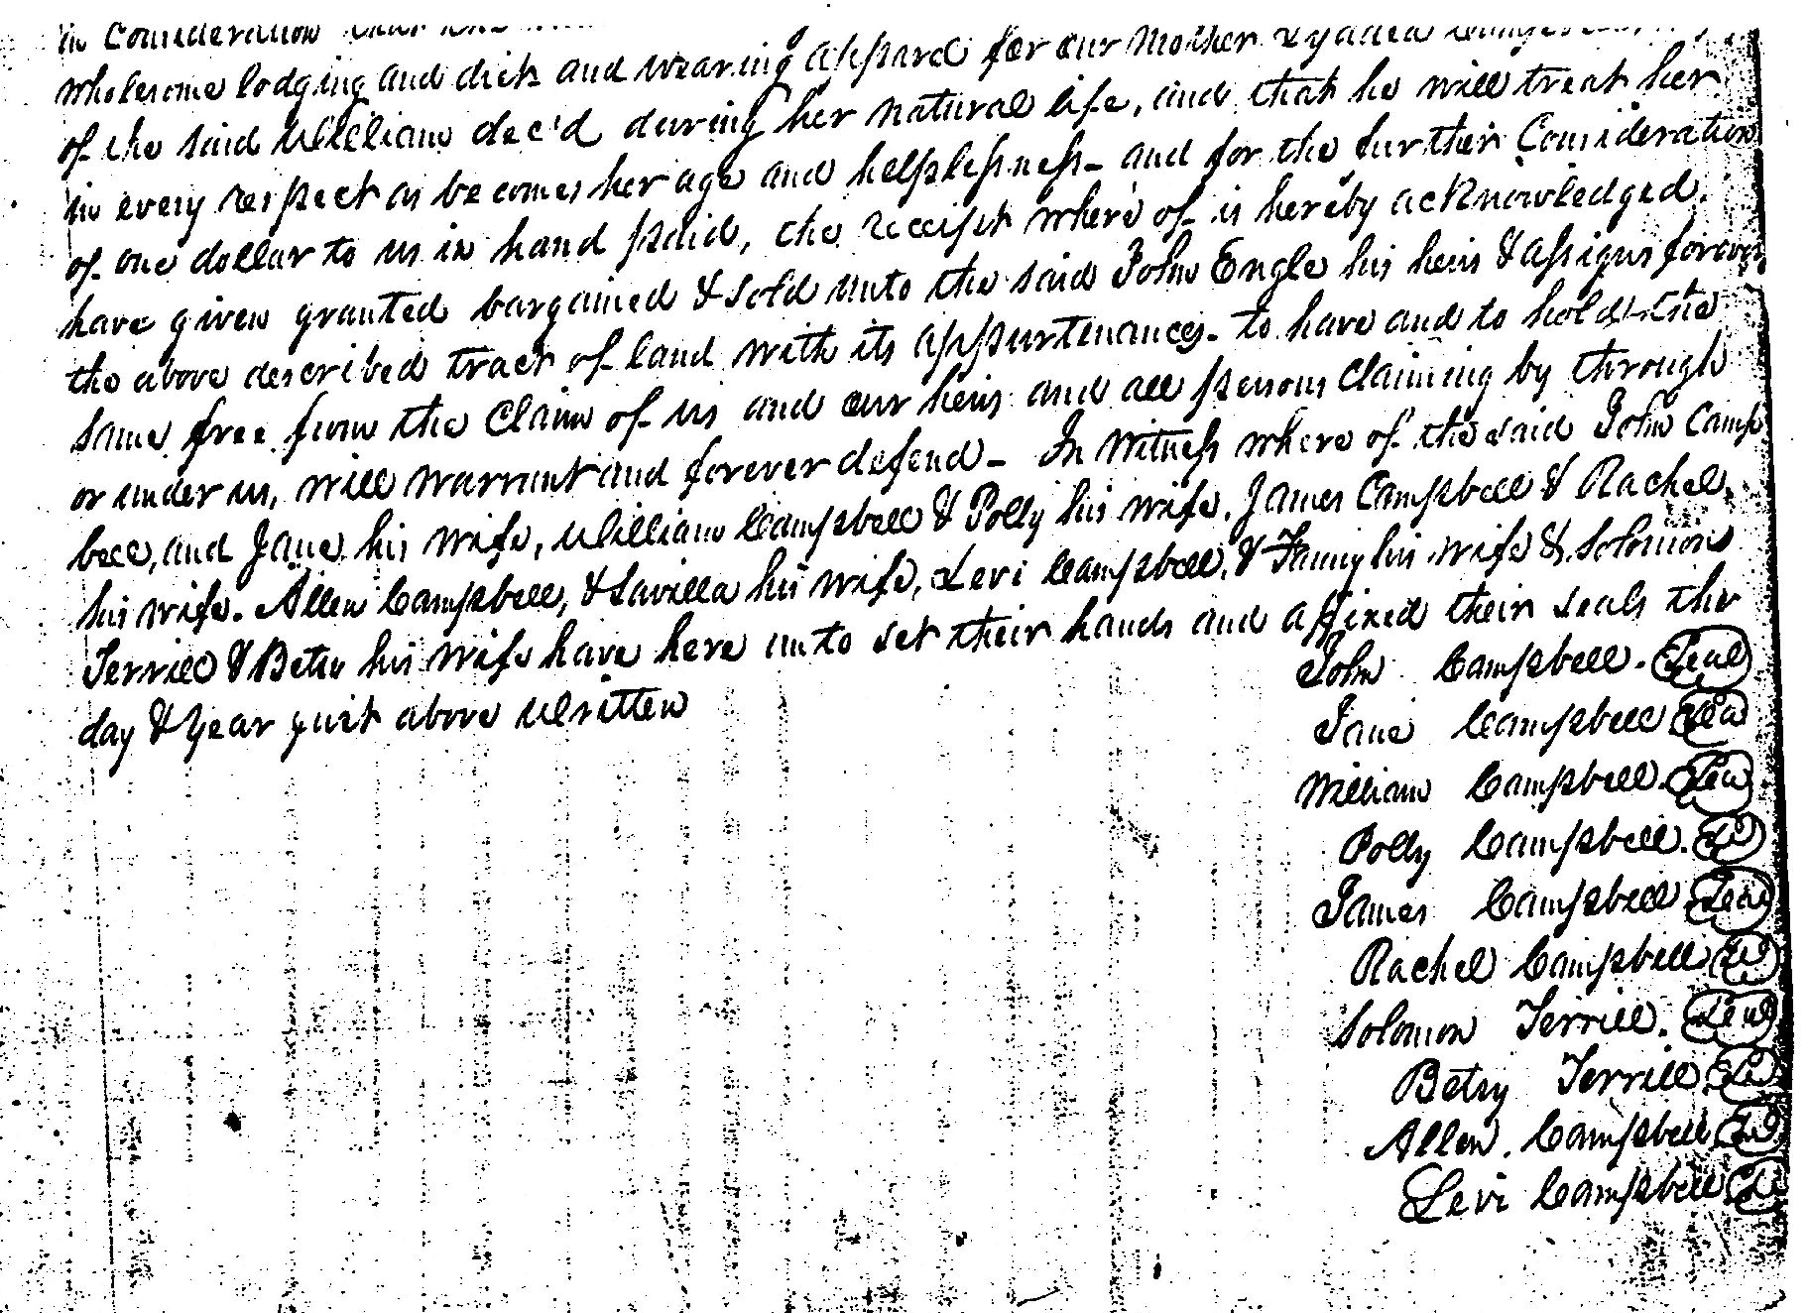 in Consideration that the
wholesome lodging and diet and wearing apparel for our Mother
of the said William dec'd during her natural life, and that he will treat her
in every respect as becomes her age and helplessness - and for the further Consideration
of one dollar to us in hand paid, the receipt where of is hereby acknowledged.
have given granted bargained & sold unto the said John Engle his heirs & assigns forever
the above described tract of land with its appurtenances - to have and to hold the
same free from the Claim of us and our heirs and all persons Claiming by through
or under us, will warrant and forever defend - In Witness where of the said John Camp
bell, and Jane his wife, William Campbell & Polly his wife, James Campbell & Rachel,
his wife. Allen Campbell, & Savilla his wife, Levi Campbell, & Fanny his wife & Solomon
Terrill & Betsy his wife have here unto set their hands and affixed their seals the
day & year first above written
John Campbell. Seal
Jane Campbell Seal
William Campbell. Seal
Polly Campbell. Seal
James Campbell. Seal
Rachel Campbell Seal
Solomon Terrill. Seal
Betsy Terrill. Seal
Allen. Campbell Seal
Levi Campbell Seal